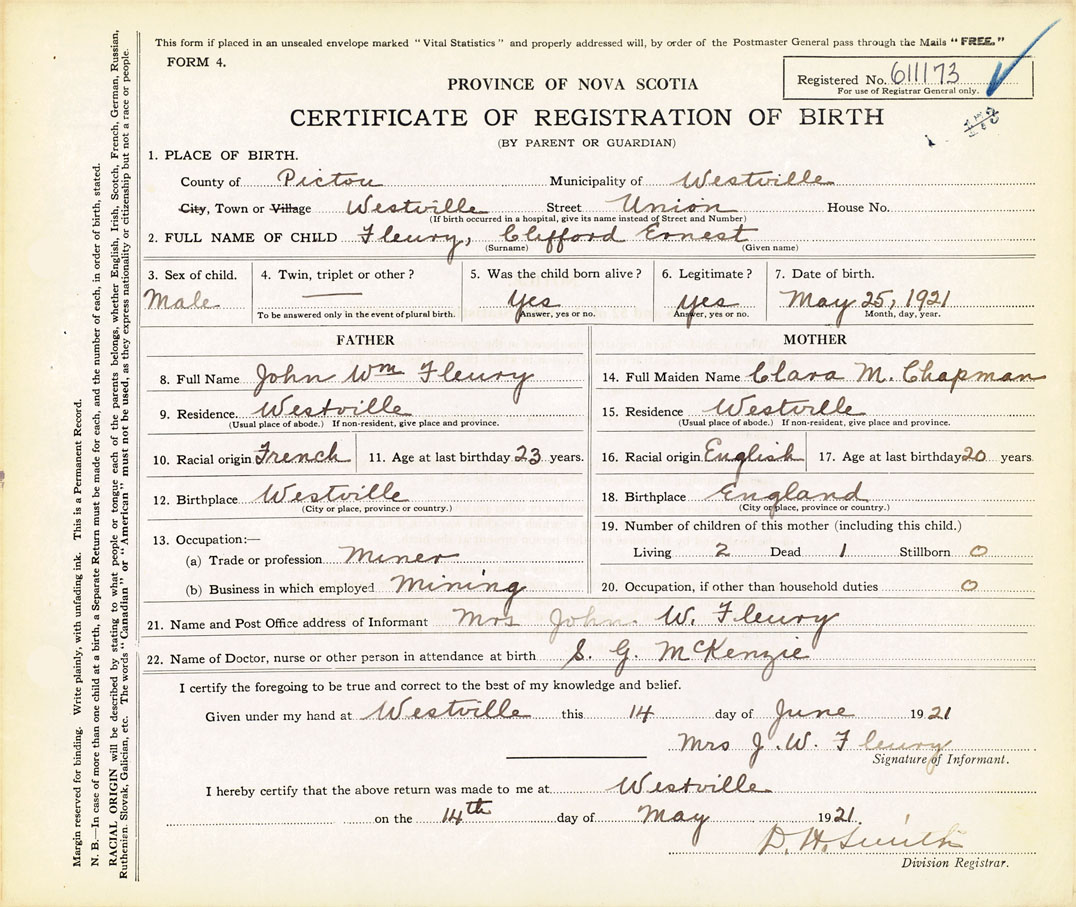 This form if placed in an unsealed envelope marked "Vital Statistics" and properly addressed will, by order of the Postmaster General pass through the Mails "FREE."
FORM 4.
Registered No. 611173
For use of Registrar General only.
PROVINCE OF NOVA SCOTIA
CERTIFICATE OF REGISTRATION OF BIRTH
(BY PARENT OR GUARDIAN)
1. PLACE OF BIRTH.
County of Pictou Municipality of Westville
City, Town or Village Westville Street Union House No.
(If birth occurred in a hospital, give its name instead of Street and Number)
2. FULL NAME OF CHILD Fleury, Clifford Ernest
(Surname) (Given name)
3. Sex of child. 4. Twin, triplet or other? 5. Was the child born alive? 6. Legitimate? 7. Date of birth.
Male — yes yes May 25, 1921
To be answered only in the event of plural birth. Answer, yes or no. Answer, yes or no. Month, day, year.
FATHER MOTHER
8. Full Name John Wm Fleury 14. Full Maiden Name Clara M. Chapman
9. Residence. Westville 15. Residence Westville
(Usual place of abode.) If non-resident, give place and province. (Usual place of abode.) If non-resident, give place and province.
10. Racial origin French 11. Age at last birthday 23 years. 16. Racial origin English 17. Age at last birthday 20 years
12. Birthplace Westville 18. Birthplace England
(City or place, province or country.) (City or place, province or country.)
13. Occupation:— 19. Number of children of this mother (including this child.)
(a) Trade or profession Miner Living 2 Dead 1 Stillborn 0
(b) Business in which employed Mining 20. Occupation, if other than household duties 0
21. Name and Post Office address of Informant Mrs John W. Fleury
22. Name of Doctor, nurse or other person in attendance at birth S. G. McKenzie
I certify the foregoing to be true and correct to the best of my knowledge and belief.
Given under my hand at Westville this 14 day of June 1921
Mrs J. W. Fleury
Signature of Informant.
I hereby certify that the above return was made to me at Westville
on the 14th day of May 1921.
D. H. Smith
Division Registrar.
Margin reserved for binding. Write plainly, with unfading ink. This is a Permanent Record.
N. B.—In case of more than one child at a birth, a Separate Return must be made for each, and the number of each, in order of birth, stated.
RACIAL ORIGIN will be described by stating to what people or tongue each of the parents belongs, whether English, Irish, Scotch, French, German, Russian,
Ruthenian, Slovak, Galician, etc. The words "Canadian" or "American" must not be used, as they express nationality or citizenship but not a race or people.